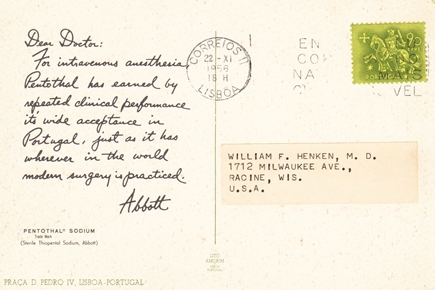 Dear Doctor:
For intravenous anesthesia,
Pentothal has earned by
repeated clinical performance
its wide acceptance in
Portugal, just as it has
wherever in the world
modern surgery is practiced.
Abbott
PENTOTHAL® SODIUM
Trade Mark
(Sterile Thiopental Sodium, Abbott)
PRAÇA D. PEDRO IV, LISBOA-PORTUGAL
CORREIOS
22-XI
1956
16 H
LISBOA
EN
CO
NA
VEL
PORTUGAL
WILLIAM F. HENKEN, M. D.
1712 MILWAUKEE AVE.,
RACINE, WIS.
U.S.A.